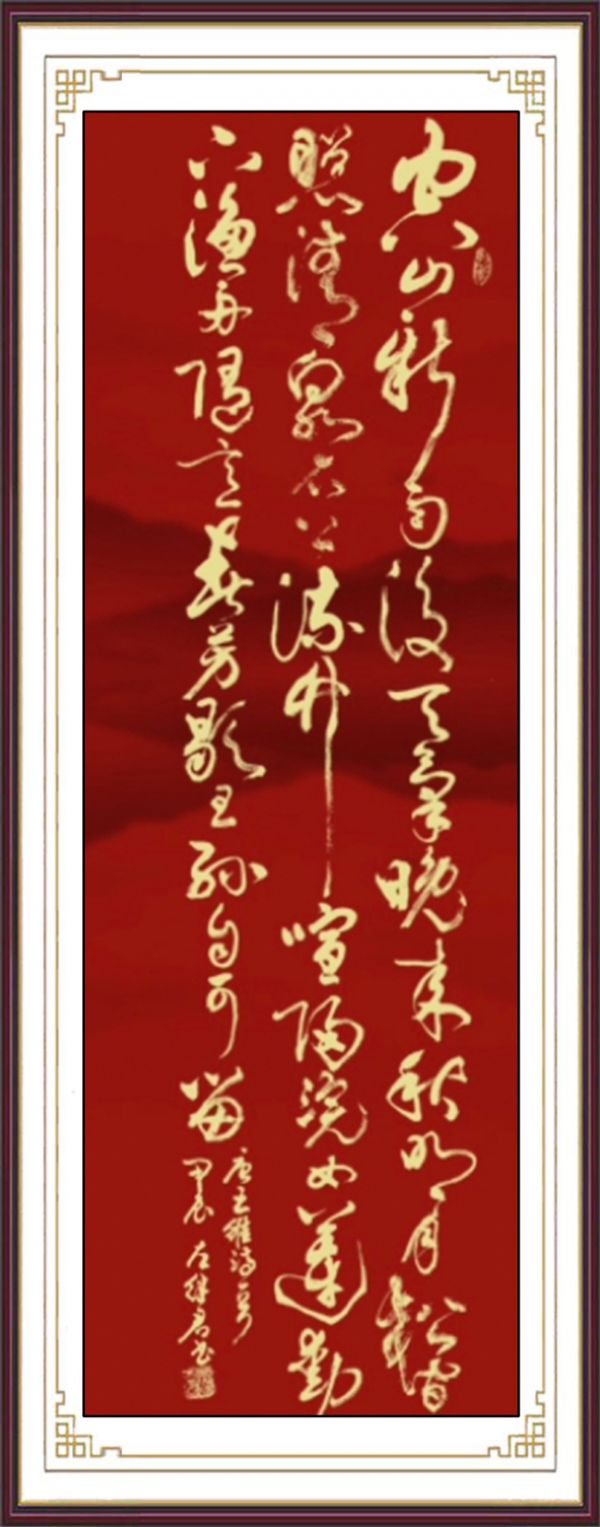 空山新雨後天氣晚来秋明月松間
照清泉石上流竹喧歸浣女蓮動
下漁舟隨意春芳歇王孫自可留
唐王維詩一首
甲辰 左继君书